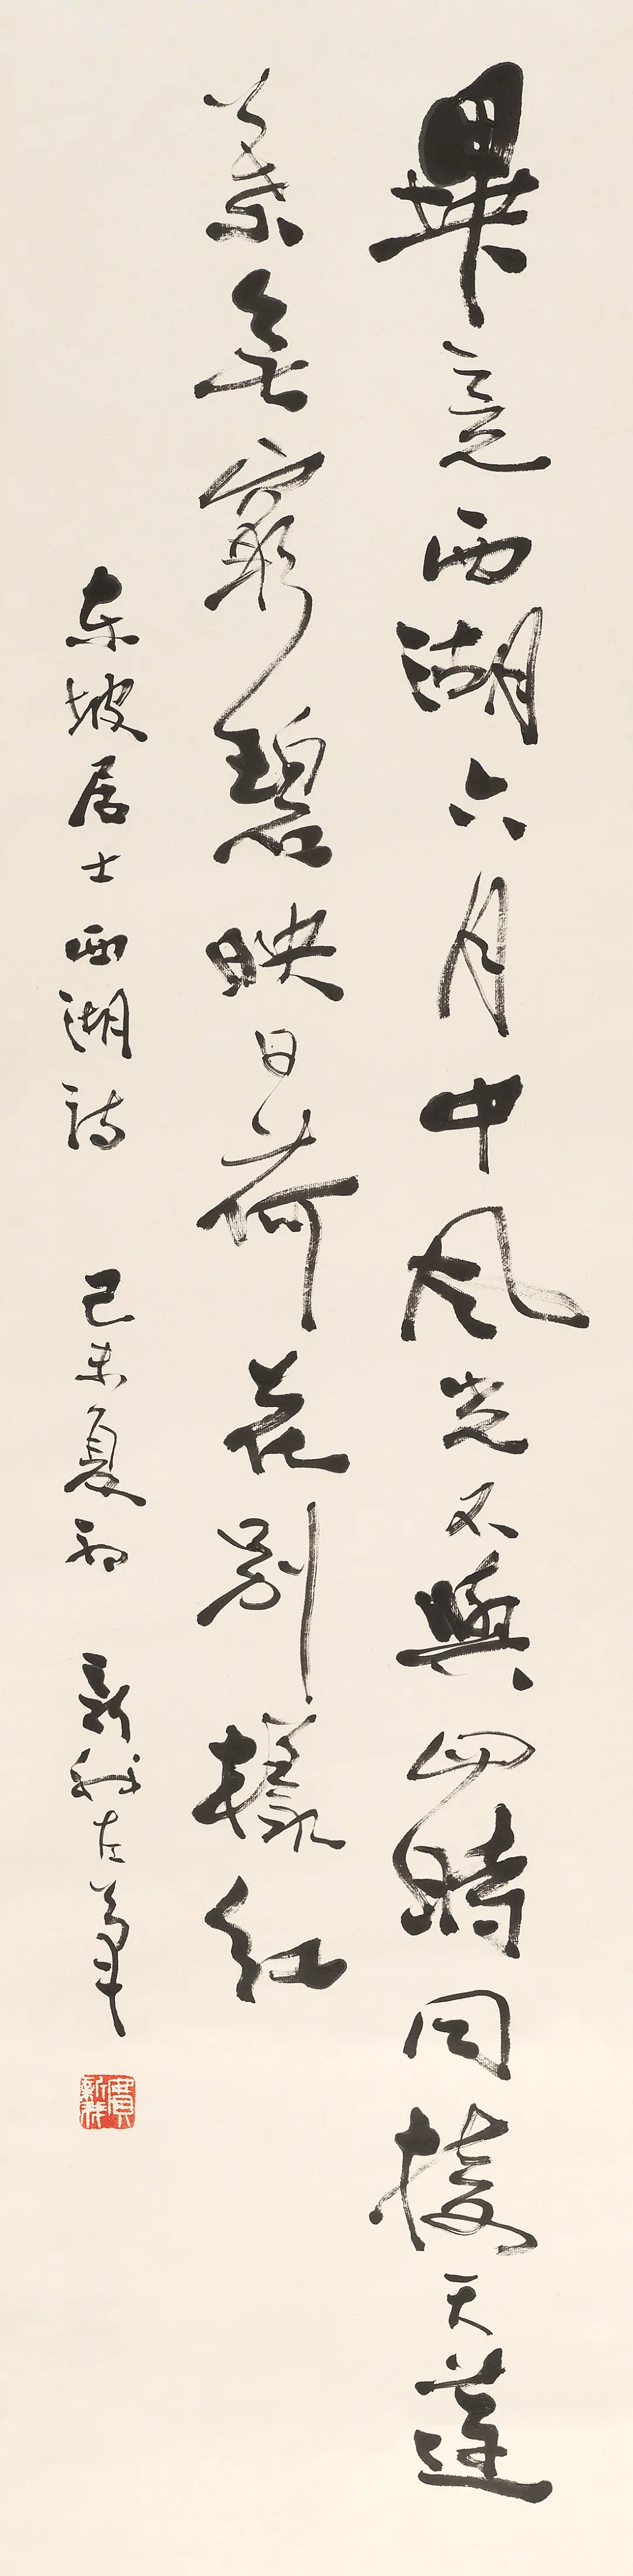 畢竟西湖六月中風光不與四時同接天蓮
葉無窮碧映日荷花別樣紅
東坡居士西湖詩 己未夏初 新我左筆